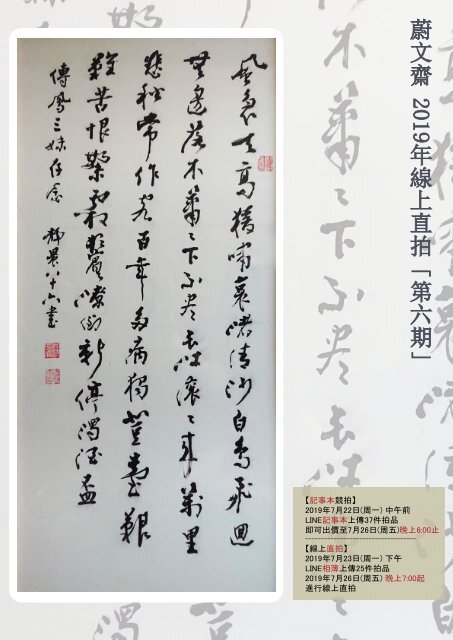 蔚文齋 2019年線上直拍「第六期」
風急天高猿嘯哀渚清沙白鳥飛迴
無邊落木蕭〻下不盡長江滾〻來萬里
悲秋常作客百年多病獨登臺艱
難苦恨繁霜鬢潦倒新停濁酒盃
鳳三妹存念 八十六書
【記事本競拍】
2019年7月22日(周一) 中午前
LINE記事本上傳37件拍品
即可出價至7月26日(周五)晚上6:00止
--------------------------------
【線上直拍】
2019年7月23日(周一) 下午
LINE相簿上傳25件拍品
2019年7月26日(周五) 晚上7:00起
進行線上直拍